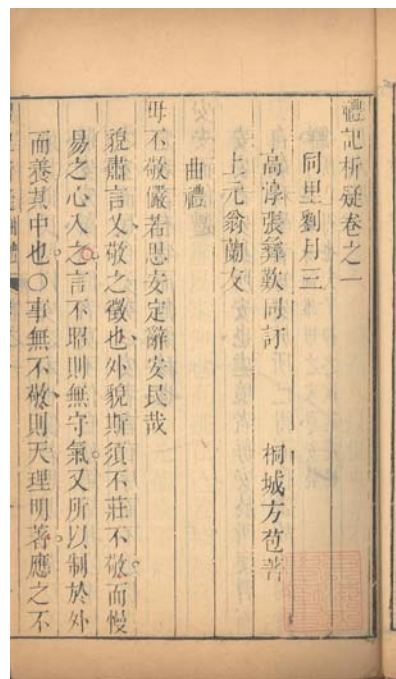 禮記析疑卷之一
同里劉月三
高淳張彝歎同訂 桐城方苞著
上元翁蘭友
曲禮
毋不敬儼若思安定辭安民哉
貌肅言乂敬之徵也外貌斯須不莊不敬而慢
易之心入之言不昭則無守氣又所以制於外
而養其中也○事無不敬則天理明著應之不